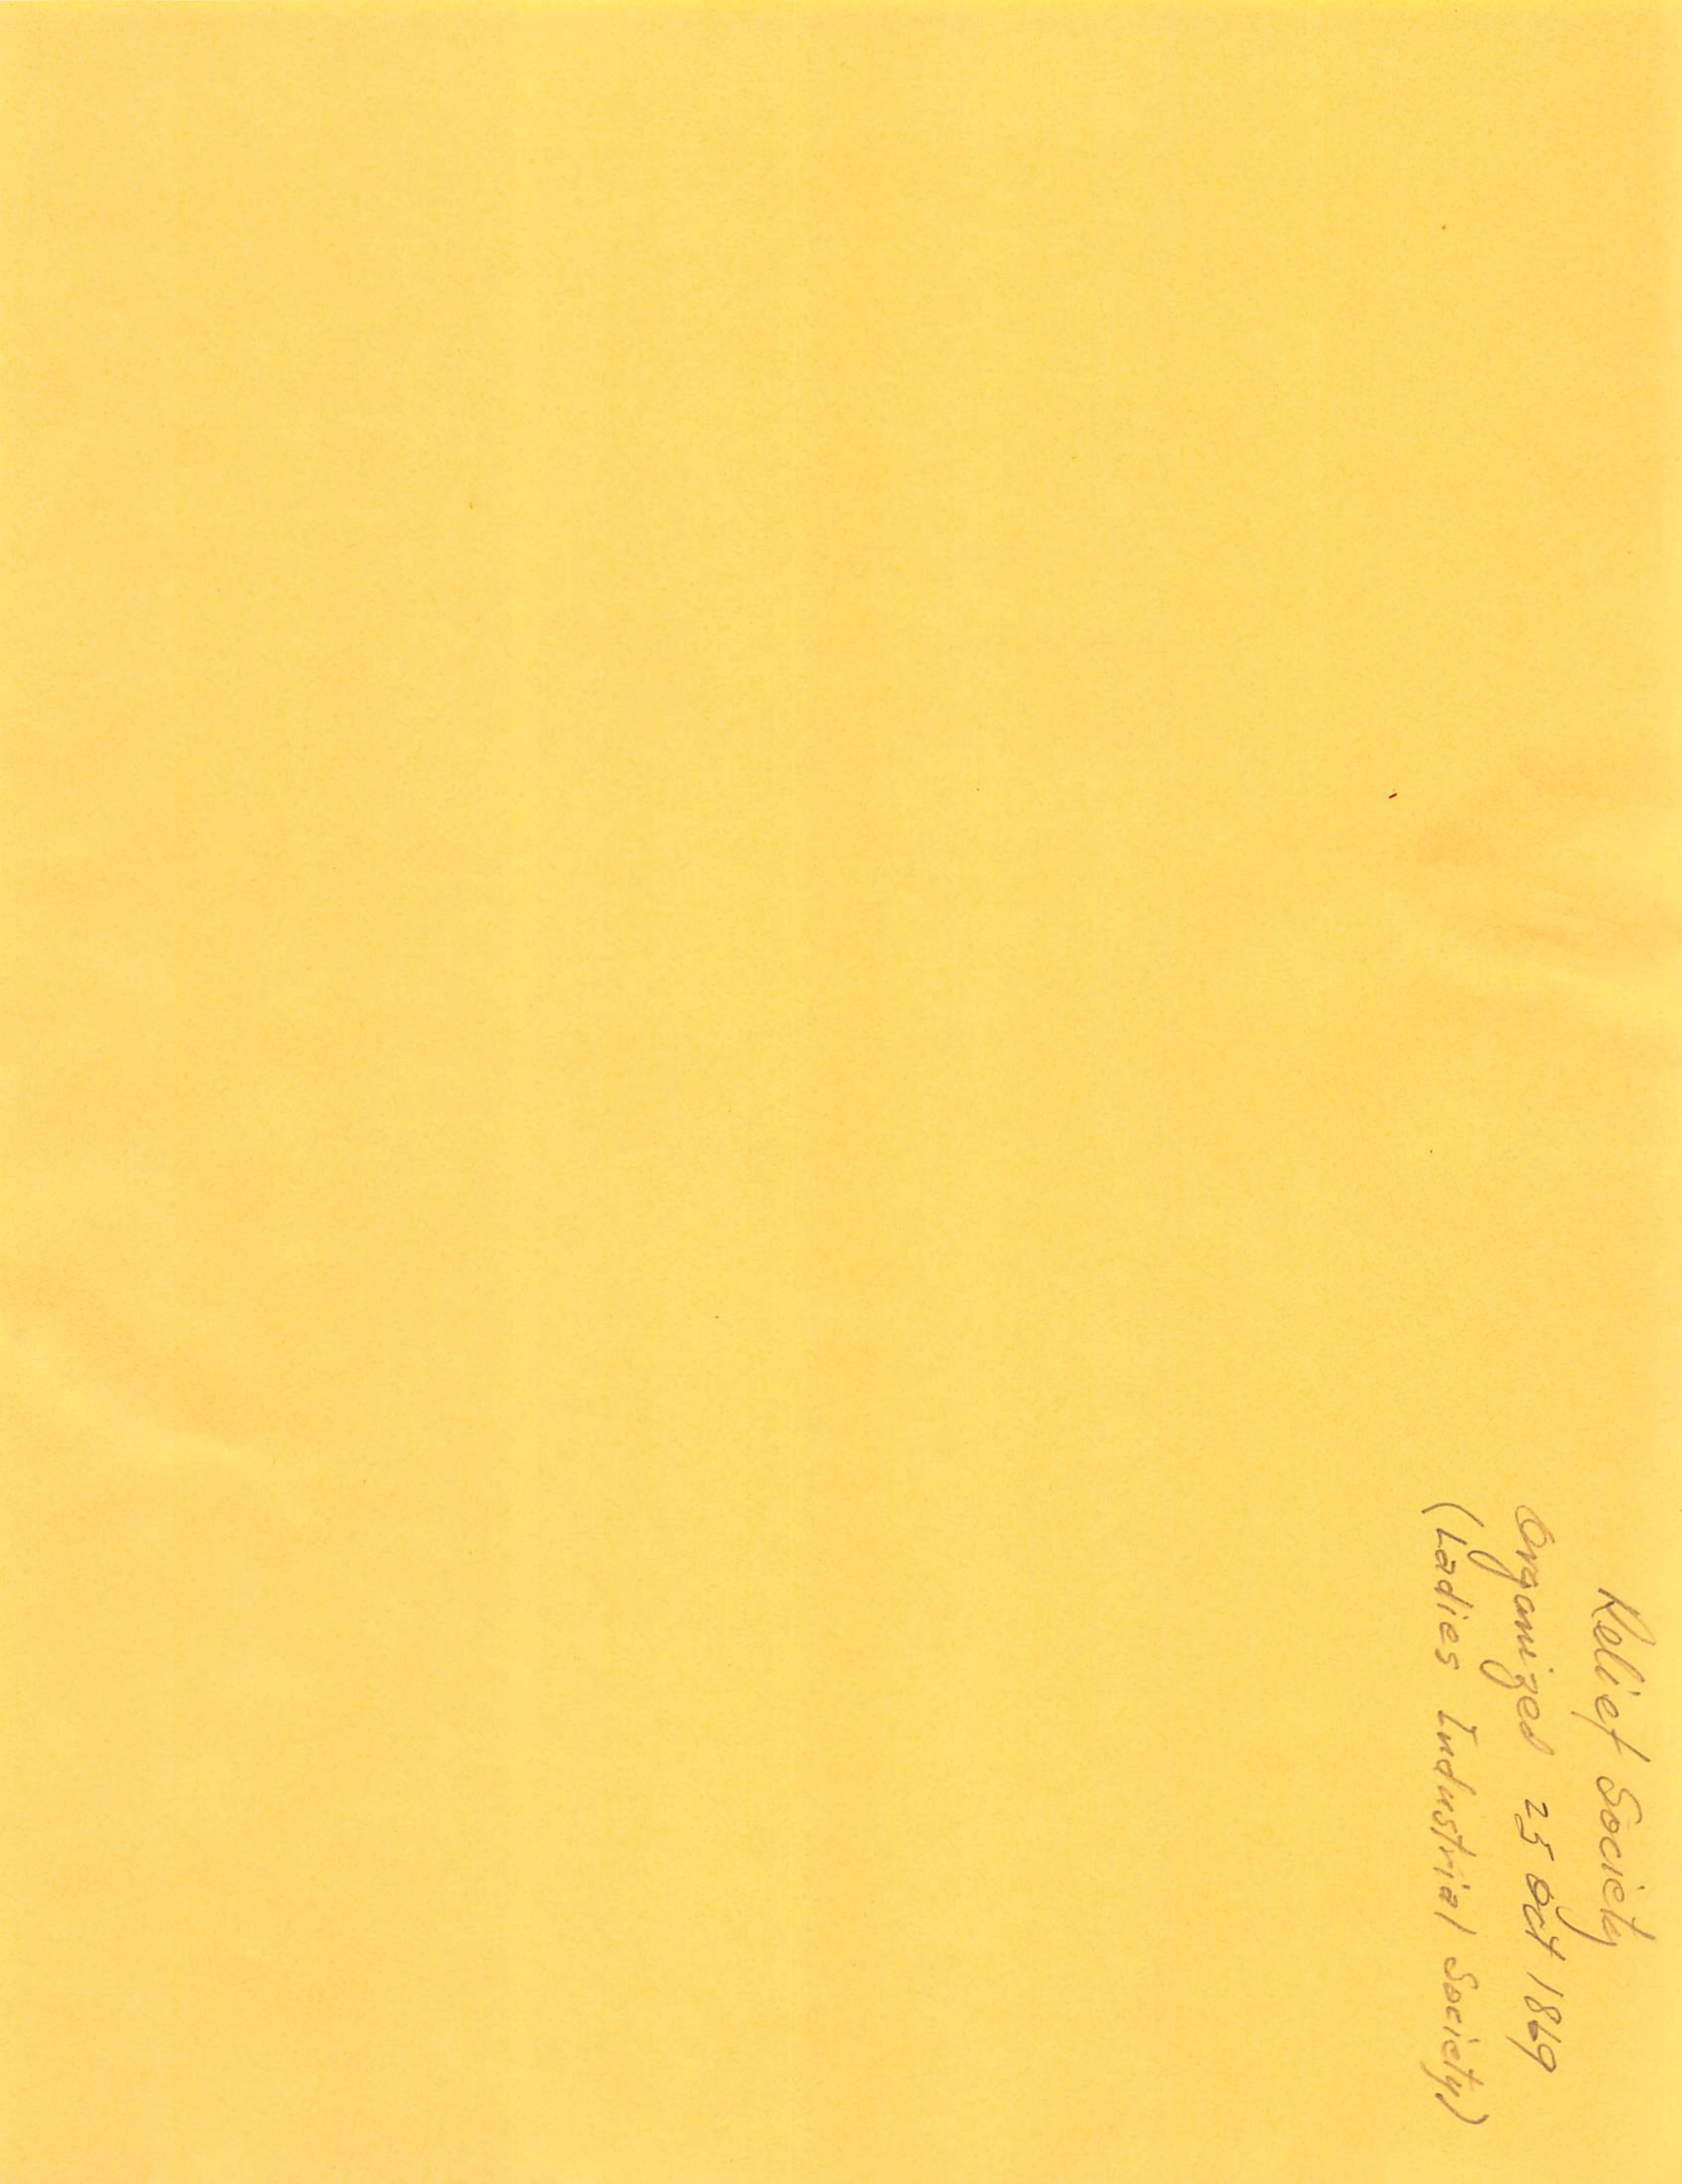 Relief Society
Organized 25 Oct 1869
(Ladies Industrial Society)